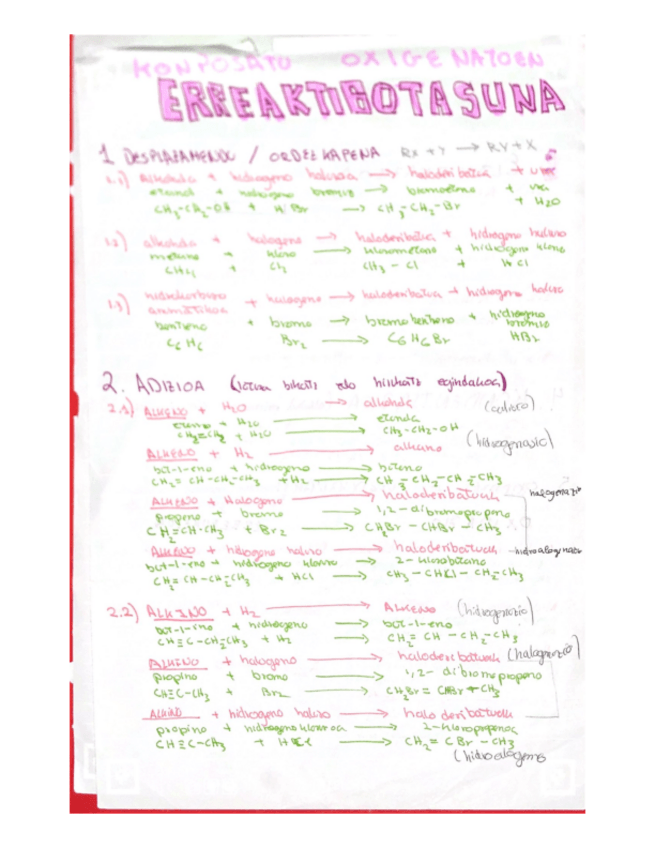 KONPOSATU OXIGENATOEN
ERREAKTIBOTASUNA
1 DESPLAZAMENDU / ORDEZKAPENA RX + Y → RY + X
1.1) Alkohola + hidrogeno haluroa → haloderibatua + ura
etanol + hidrogeno bromuro → bromoetano + ura
CH3-CH2-OH + HBr → CH3-CH2-Br + H2O
1.2) alkanoa + halogeno → haloderibatua + hidrogeno haluro
metano + kloro → klorometano + hidrogeno kloro
CH4 + Cl2 CH3 - Cl + HCl
1.3) hidrokarburo aromatikoa + halogeno → haloderibatua + hidrogeno haluro
bentzeno + bromo → bromo bentzeno + hidrogeno bromuro
C6H6 Br2 → C6H6Br HBr
2. ADIZIOA (lotura bikoitz edo hirukoitz egindakoa)
2.1) ALKENO + H2O → alkohola
eteno + H2O → etanola
CH2=CH2 + H2O → CH3-CH2-OH
ALKENO + H2 → alkano (hidrogenazio)
but-1-eno + hidrogeno → butano
CH2=CH-CH2-CH3 + H2 → CH3-CH2-CH2-CH3
ALKENO + Halogeno → haloderibatuak halogenazio
propeno + bromo → 1,2-dibromopropano
CH2=CH-CH3 + Br2 → CH2Br - CHBr - CH3
ALKENO + hidrogeno haluro → haloderibatuak
but-1-eno + hidrogeno kloruro → 2-klorobutano
CH2=CH-CH2-CH3 + HCl → CH3-CHCl-CH2-CH3
2.2) ALKINO + H2 → ALKENO (hidrogenazio)
but-1-ino + hidrogeno → but-1-eno
CH≡C-CH2CH3 + H2 → CH2=CH-CH2-CH3
ALKINO + halogeno → haloderibatuak (halogenazio)
propino + bromo → 1,2-dibromopropeno
CH≡C-CH3 + Br2 → CHBr=CBr-CH3
ALKINO + hidrogeno haluro → halo deribatuak
propino + hidrogeno kloruroa → 2-kloropropenoa
CH≡C-CH3 + HCl → CH2=CBr-CH3